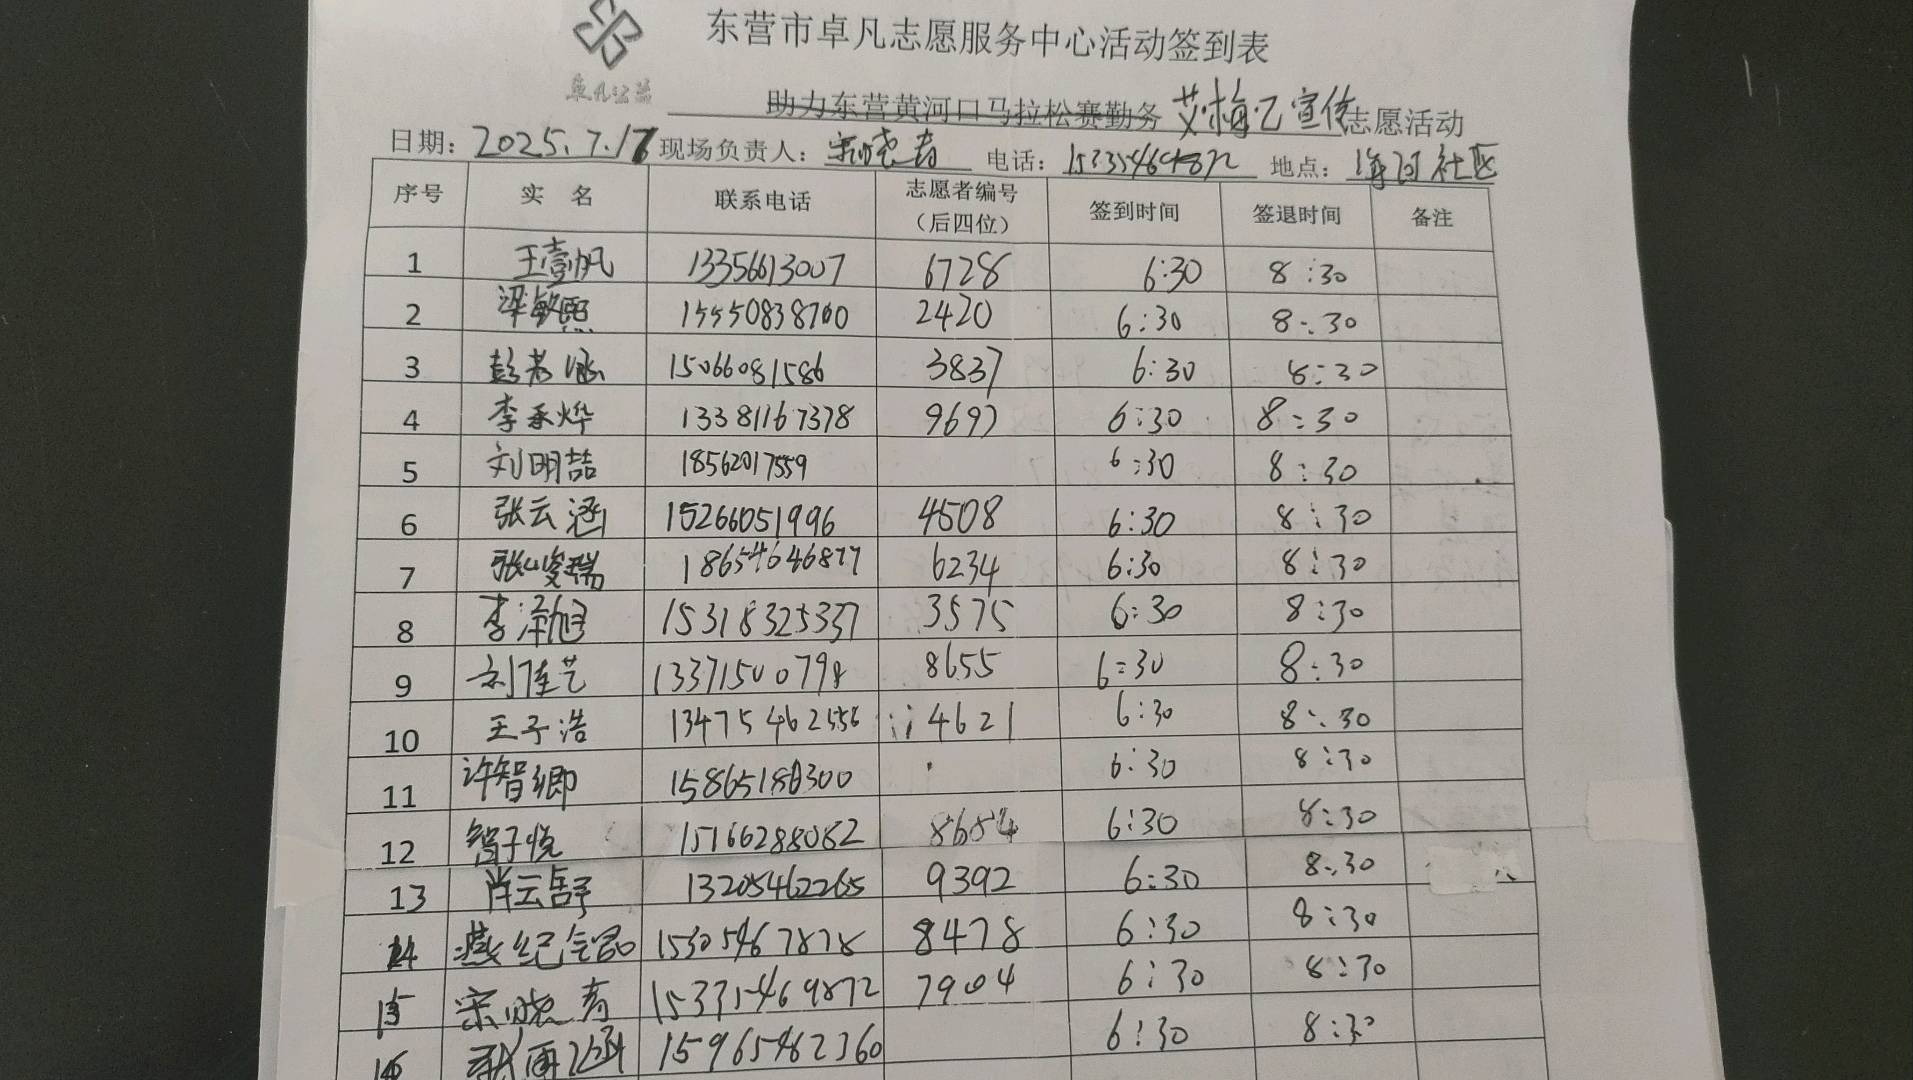 卓凡公益
东营市卓凡志愿服务中心活动签到表
助力东营黄河口马拉松赛勤务 艾梅乙宣传志愿活动
日期：2025.7.17 现场负责人：宋晓春 电话：15335469872 地点：海河社区
序号 实 名 联系电话 志愿者编号（后四位） 签到时间 签退时间 备注
1 王壹帆 13356613007 6728 6:30 8:30
2 梁敏熙 15550838700 2420 6:30 8:30
3 彭茗涵 15066081586 3837 6:30 8:30
4 李承烨 13381167378 9697 6:30 8:30
5 刘明喆 18562017559 6:30 8:30
6 张云涵 15266051996 4508 6:30 8:30
7 张峻瑞 18654646877 6234 6:30 8:30
8 李泽旭 15318325337 3575 6:30 8:30
9 刘佳艺 13371500798 8655 6:30 8:30
10 王子浩 13475462556 4621 6:30 8:30
11 许智卿 15865188300 6:30 8:30
12 子悦 15166288082 8684 6:30 8:30
13 肖云舒 13205462265 9392 6:30 8:30
14 燕纪 15305467878 8478 6:30 8:30
15 宋晓春 15335469872 7904 6:30 8:30
16 涵 15965462360 6:30 8:30